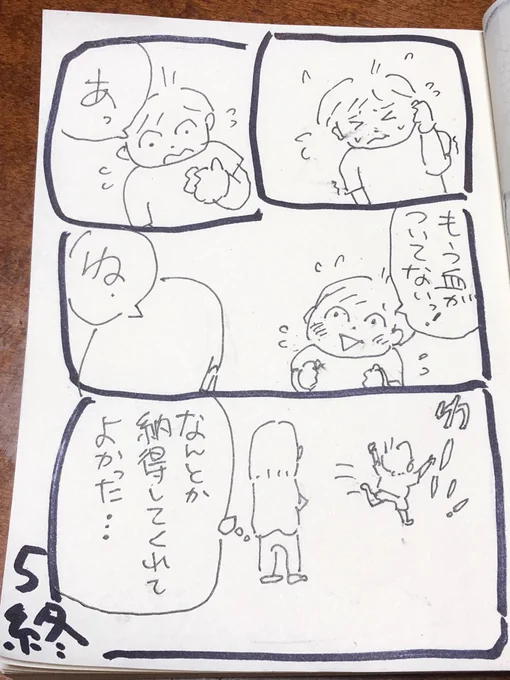 あっ
もう血が
ついてないっ!
ね.
なんとか
納得してくれて
よかった…
5
終